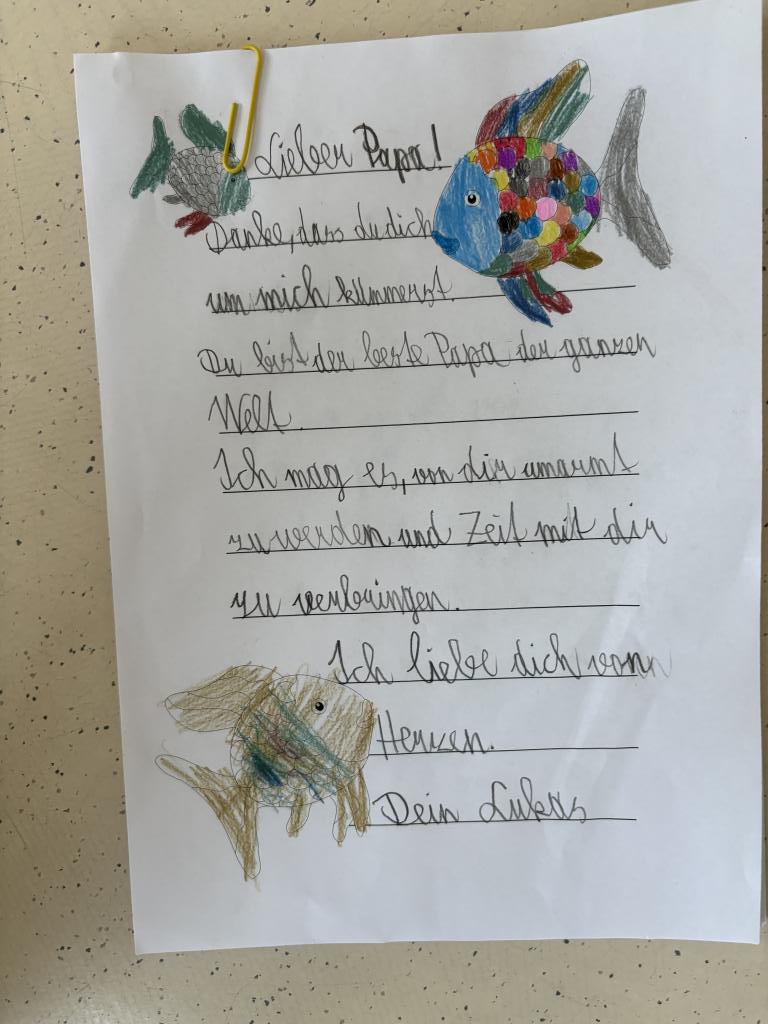 Lieber Papa!
Danke, dass du dich
um mich kümmerst.
Du bist der beste Papa der ganzen
Welt.
Ich mag es, von dir umarmt
zu werden und Zeit mit dir
zu verbringen.
Ich liebe dich vonn
Herzen.
Dein Lukas